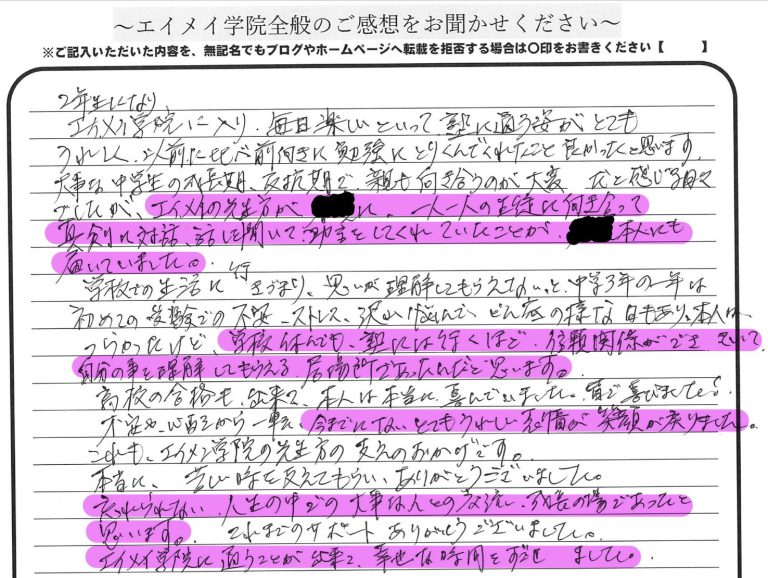 ～エイメイ学院全般のご感想をお聞かせください～
※ご記入いただいた内容を、無記名でもブログやホームページへ転載を拒否する場合は〇印をお書きください【　　】
2年生になり
エイメイ学院に入り、毎日楽しいといって、塾に通う姿がとても
うれしく、以前に比べ前向きに勉強にとりくんでくれたこと良かったと思います。
大事な中学生の成長期、反抗期で、親も向き合うのが大変だと感じる日々
でしたが、エイメイの先生方が に、一人一人の生徒に向き合って
真剣に対話、話を聞いて、助言をしてくれていたことが、 本人にも
届いていました。
学校での生活に行きづまり、思いが理解してもらえないと、中学3年の一年は
初めての受験での不安、ストレス、沢山悩んで、どん底の様な日もあり、本人は
つらかったけど、学校休んでも、塾には行くほど、信頼関係ができていて
自分の事を理解してもらえる、居場所であったんだと思います。
高校の合格も、出来て、本人は本当に喜んでいました。皆で喜びました!
不安や 心配から一転、今までにないとてもうれしい表情が 笑顔が戻りました。
これも、エイメイ学院の先生方の支えのおかげです。
本当に、苦しい時を支えてもらい、ありがとうございました。
忘れられない、人生の中での大事な人との交流、成長の場であったと
思います。これまでのサポートありがとうございました。
エイメイ学院に通うことが出来て、幸せな時間をすごしました。